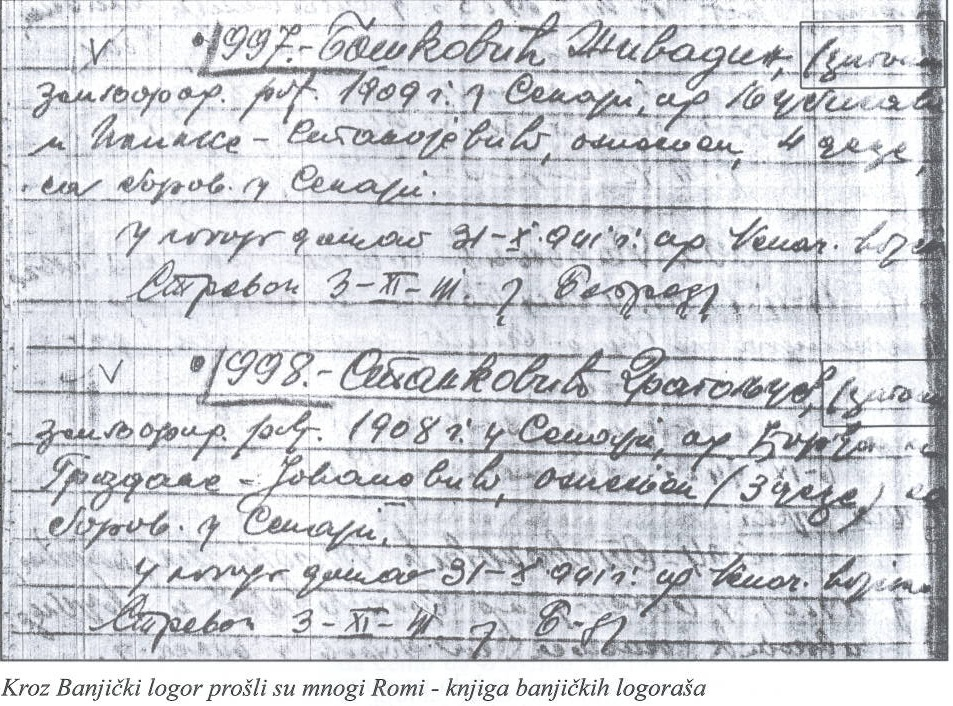 997.- Бошковић Живадин, (циган
земљорад. рођ. 1909 г. у Сенаји, од
и - Станојевић, ожењен, 4 деце,
са боров. у Сенаји.
у логор дошао 31-X-941 г. од Немач. војн
Стрељан 3-XI-41. у Београду
998.- Станковић Драгољуб, (циган
земљорад. рођ. 1908 г. у Сенаји, од Ђорђа
Гроздане - Јовановић, ожењен (3 деце) са
боров. у Сенаји.
у логор дошао 31-X-941 г. од Немач. војн
Стрељан 3-XI-41. у Б-ду
Kroz Banjički logor prošli su mnogi Romi - knjiga banjičkih logoraša